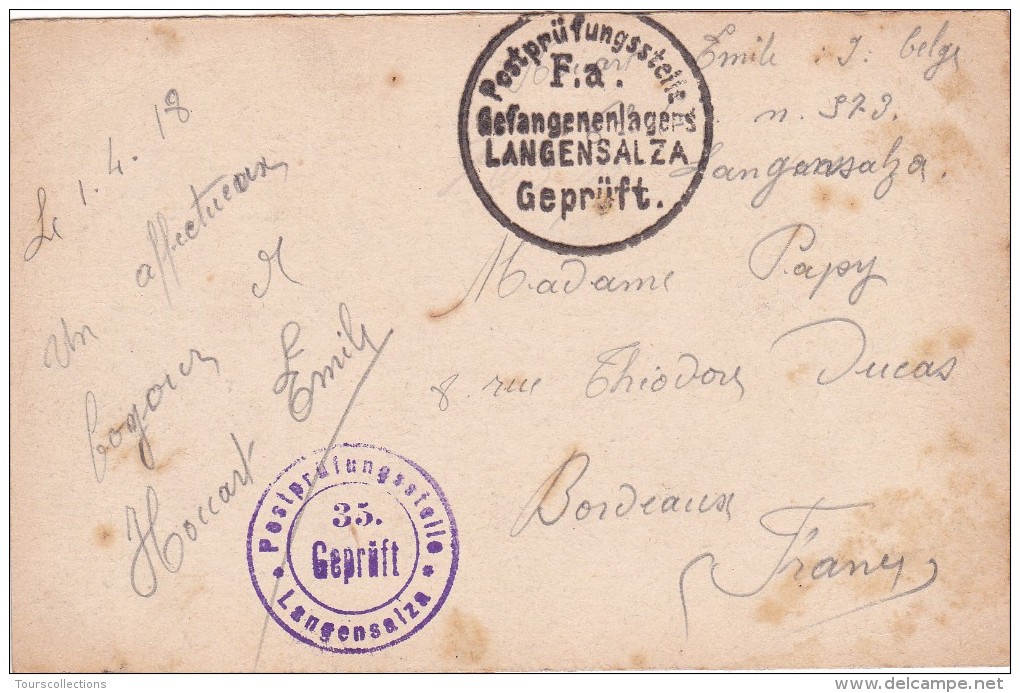 Le 1.4.18
Un affectueux
bogour de
Houart Emile
Postprüfungsstelle
F.a.
Gefangenenlagers
LANGENSALZA
Geprüft.
Emile . J. belge
n. 373.
Langensalza.
Madame Papy
8. rue Théodore Ducas
Bordeaux
(France)
Postprüfungsstelle
35.
Geprüft
* Langensalza *
Tourscollections
delcampe.net